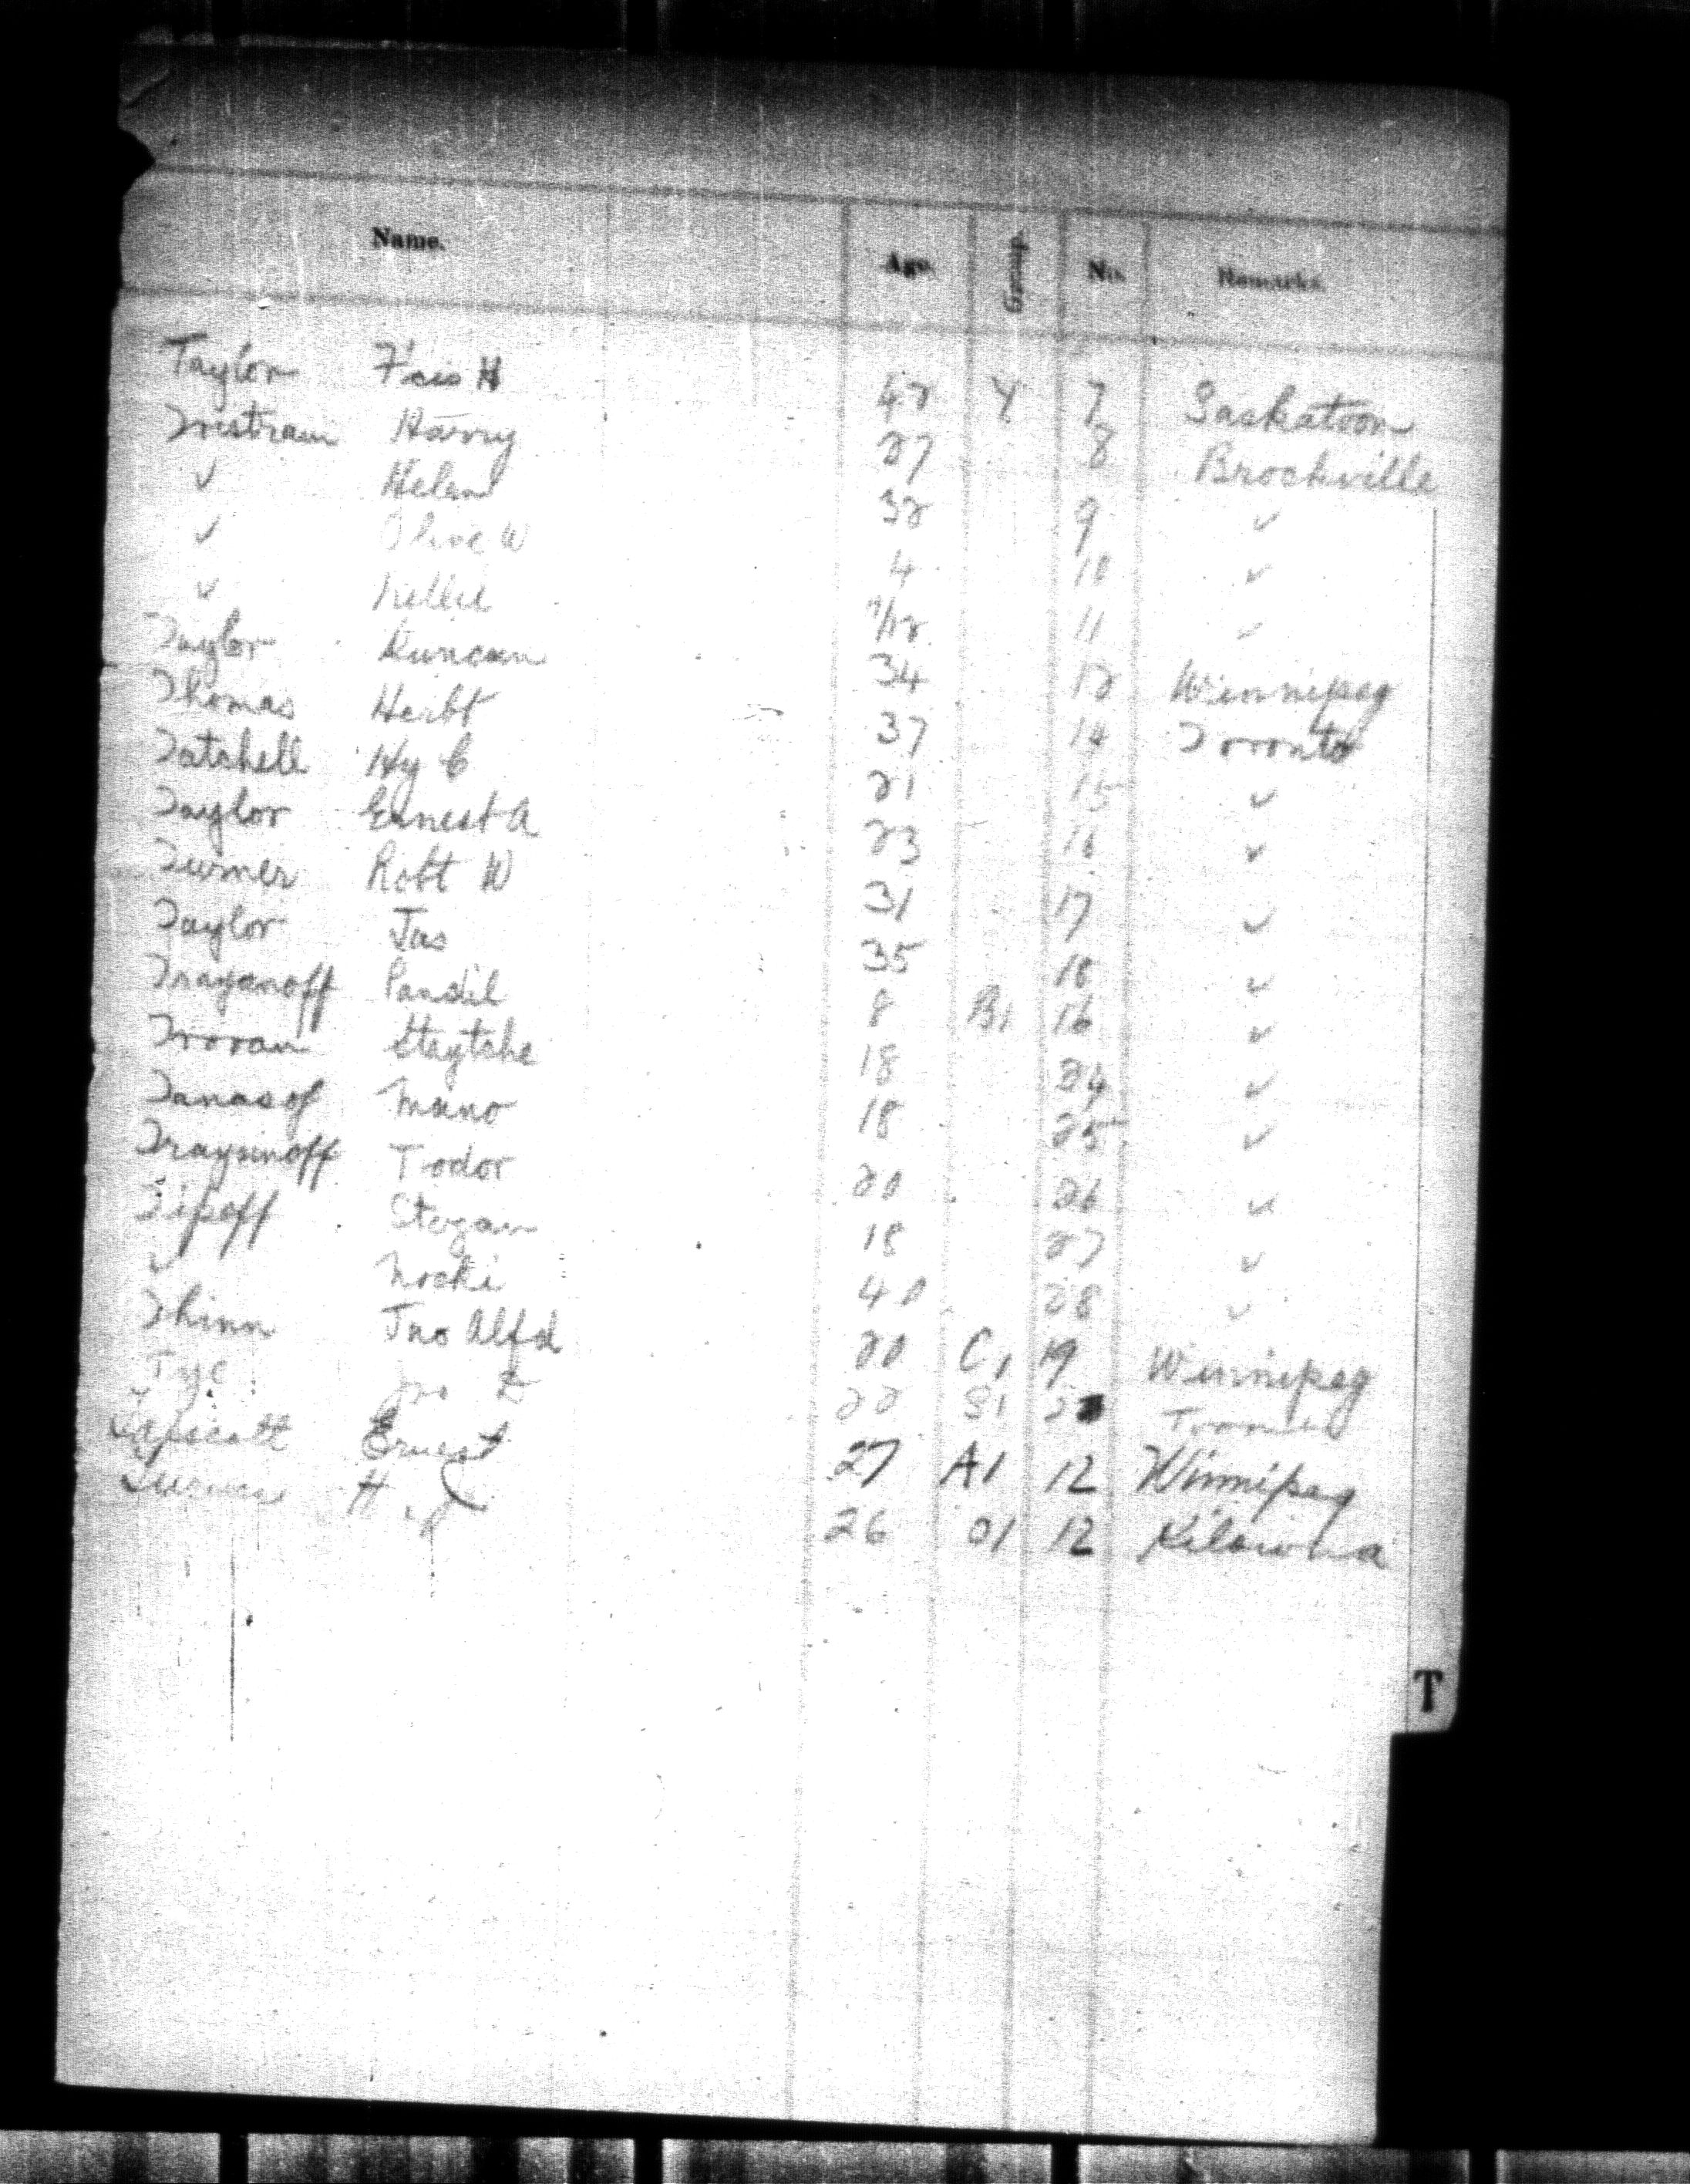 Name. Age. Group No. Remarks.
Taylor F'cis H 42 Y 7 Saskatoon
Tristram Harry 27 8 Brockville
✓ Helen 32 9 ✓
✓ Olive W 4 10 ✓
✓ Nellie 9/12 11 ✓
Taylor Duncan 34 12 Winnipeg
Thomas Herbt 37 14 Toronto
Tatchell Hy C 21 15 ✓
Taylor Ernest A 23 16 ✓
Turner Robt W 31 17 ✓
Taylor Jas 35 18 ✓
Trayanoff Pandil 8 B1 16 ✓
Trovan Staytche 18 24 ✓
Tanasof Mano 18 25 ✓
Trayanoff Todor 20 26 ✓
Tipoff Stoyan 18 27 ✓
✓ Noski 40 28 ✓
Thinn Jno Alfd 20 C1 19 Winnipeg
Tye Jno 22 S1 Toronto
Tapscott Ernest 27 A1 12 Winnipeg
H 26 O1 12 Kilowna
T